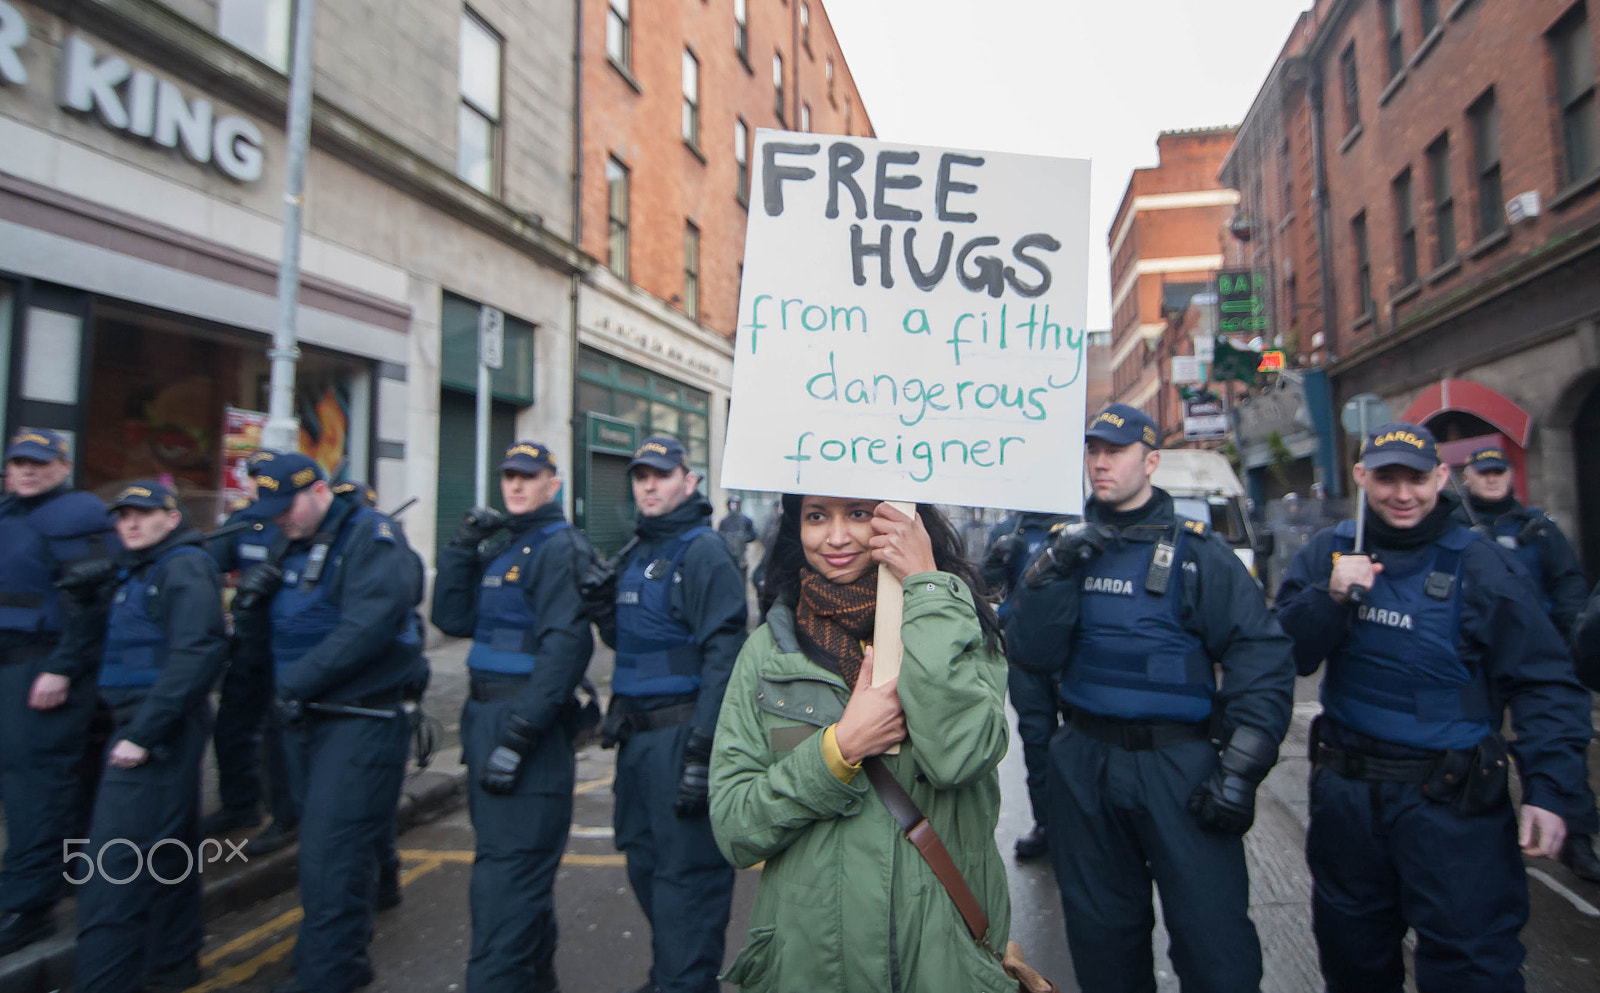 R KING
FREE
HUGS
from a filthy
dangerous
foreigner
BAR
GARDA
GARDA
GARDA
GARDA
GARDA
500px